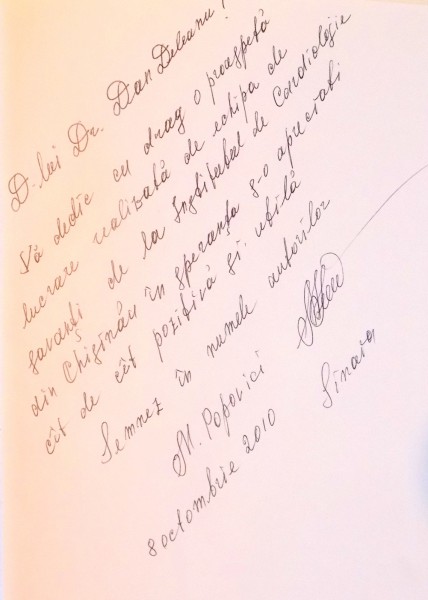 D-lui Dr. Dan Deleanu!
Vă dedic cu drag o proaspătă
lucrare realizată de echipa de
savanți de la Institutul de Cardiologie
din Chișinău în speranța s-o apreciați
cît de cît pozitivă și utilă
Semnez în numele autorilor
M. Popovici
8 octombrie 2010 Sinaia